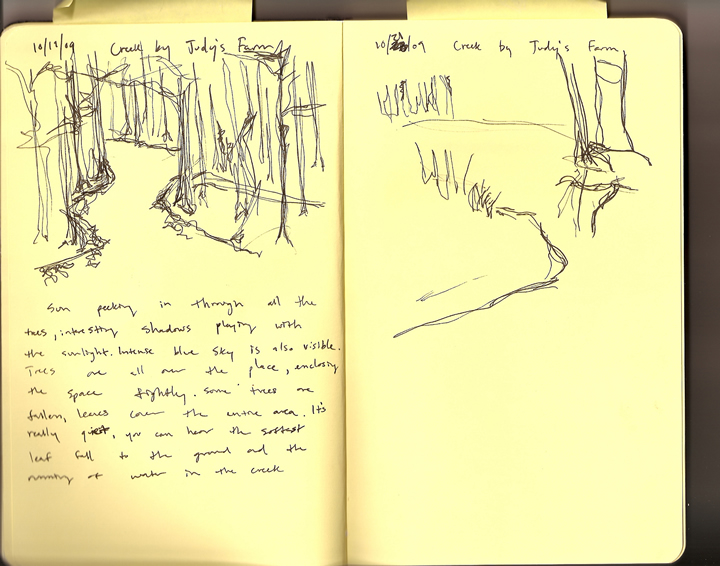 10/12/09 Creek by Judy's Farm
Sun peeking in through all the
trees, interesting shadows playing with
the sunlight. Intense blue sky is also visible.
Trees are all over the place, enclosing
the space tightly. Some trees are
fallen, leaves cover the entire area. It's
really quiet, you can hear the softest
leaf fall to the ground and the
running of water in the creek
10/ /09 Creek by Judy's Farm